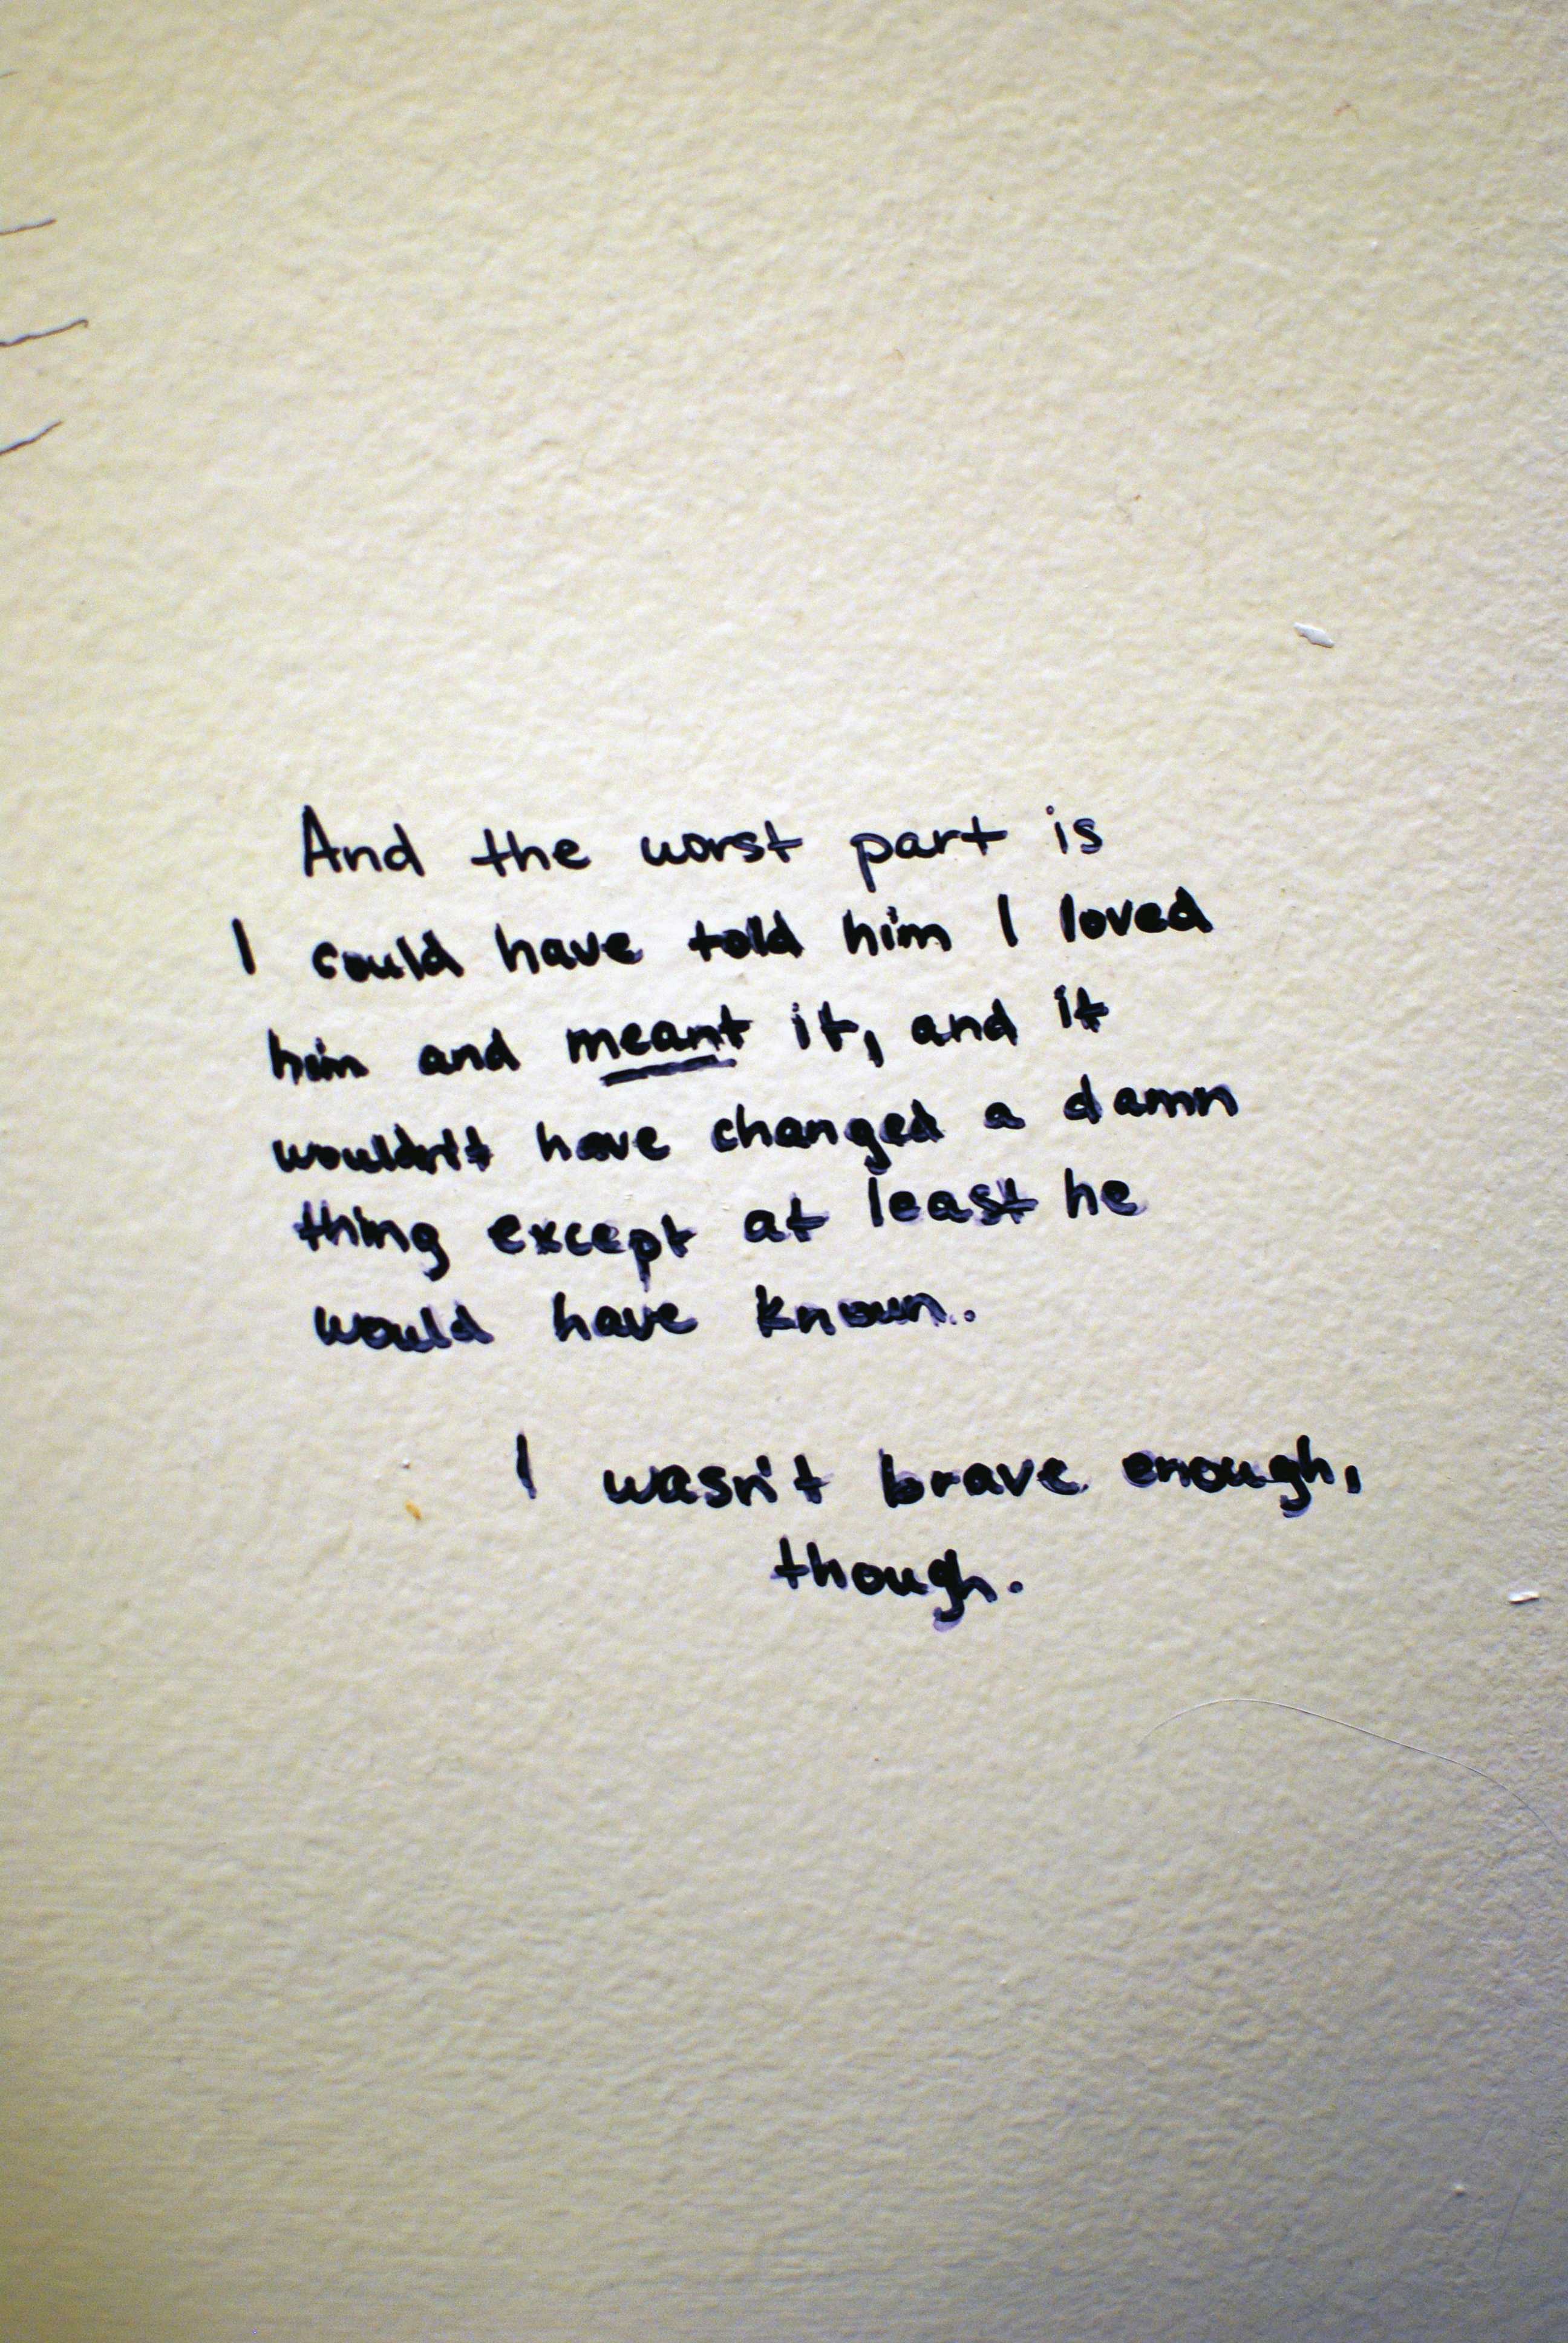 And the worst part is
I could have told him I loved
him and meant it, and it
wouldn't have changed a damn
thing except at least he
would have known.
I wasn't brave enough,
though.